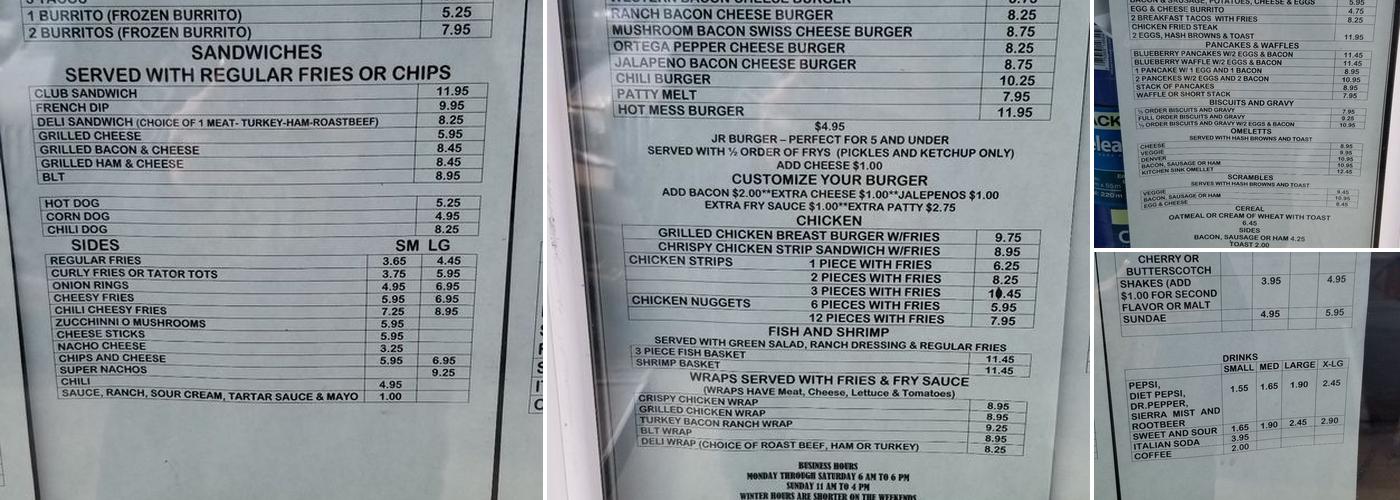 1 BURRITO (FROZEN BURRITO) 5.25
2 BURRITOS (FROZEN BURRITO) 7.95
SANDWICHES
SERVED WITH REGULAR FRIES OR CHIPS
CLUB SANDWICH 11.95
FRENCH DIP 9.95
DELI SANDWICH (CHOICE OF 1 MEAT- TURKEY-HAM-ROASTBEEF) 8.25
GRILLED CHEESE 5.95
GRILLED BACON & CHEESE 8.45
GRILLED HAM & CHEESE 8.45
BLT 8.95
HOT DOG 5.25
CORN DOG 4.95
CHILI DOG 8.25
SIDES SM LG
REGULAR FRIES 3.65 4.45
CURLY FRIES OR TATOR TOTS 3.75 5.95
ONION RINGS 4.95 6.95
CHEESY FRIES 5.95 6.95
CHILI CHEESY FRIES 7.25 8.95
ZUCCHINNI O MUSHROOMS 5.95
CHEESE STICKS 5.95
NACHO CHEESE 3.25
CHIPS AND CHEESE 5.95 6.95
SUPER NACHOS 9.25
CHILI 4.95
SAUCE, RANCH, SOUR CREAM, TARTAR SAUCE & MAYO 1.00
WESTERN BACON CHEESE BURGER
RANCH BACON CHEESE BURGER 8.25
MUSHROOM BACON SWISS CHEESE BURGER 8.75
ORTEGA PEPPER CHEESE BURGER 8.25
JALAPENO BACON CHEESE BURGER 8.75
CHILI BURGER 10.25
PATTY MELT 7.95
HOT MESS BURGER 11.95
$4.95
JR BURGER – PERFECT FOR 5 AND UNDER
SERVED WITH ½ ORDER OF FRYS (PICKLES AND KETCHUP ONLY)
ADD CHEESE $1.00
CUSTOMIZE YOUR BURGER
ADD BACON $2.00**EXTRA CHEESE $1.00**JALEPENOS $1.00
EXTRA FRY SAUCE $1.00**EXTRA PATTY $2.75
CHICKEN
GRILLED CHICKEN BREAST BURGER W/FRIES 9.75
CHRISPY CHICKEN STRIP SANDWICH W/FRIES 8.95
CHICKEN STRIPS 1 PIECE WITH FRIES 6.25
2 PIECES WITH FRIES 8.25
3 PIECES WITH FRIES
CHICKEN NUGGETS 6 PIECES WITH FRIES 5.95
12 PIECES WITH FRIES 7.95
FISH AND SHRIMP
SERVED WITH GREEN SALAD, RANCH DRESSING & REGULAR FRIES
3 PIECE FISH BASKET 11.45
SHRIMP BASKET 11.45
WRAPS SERVED WITH FRIES & FRY SAUCE
(WRAPS HAVE Meat, Cheese, Lettuce & Tomatoes)
CRISPY CHICKEN WRAP 8.95
GRILLED CHICKEN WRAP 8.95
TURKEY BACON RANCH WRAP 9.25
BLT WRAP 8.95
DELI WRAP (CHOICE OF ROAST BEEF, HAM OR TURKEY) 8.25
BUSINESS HOURS
MONDAY THROUGH SATURDAY 6 AM TO 6 PM
SUNDAY 11 AM TO 4 PM
WINTER HOURS ARE SHORTER ON THE WEEKENDS
BACON & SAUSAGE, POTATOES, CHEESE & EGGS 5.95
EGG & CHEESE BURRITO 4.75
2 BREAKFAST TACOS WITH FRIES 8.25
CHICKEN FRIED STEAK
2 EGGS, HASH BROWNS & TOAST 11.95
PANCAKES & WAFFLES
BLUEBERRY PANCAKES W/2 EGGS & BACON 11.45
BLUEBERRY WAFFLE W/2 EGGS & BACON 11.45
1 PANCAKE W/ 1 EGG AND 1 BACON 8.95
2 PANCEKES W/2 EGGS AND 2 BACON 10.95
STACK OF PANCAKES 8.95
WAFFLE OR SHORT STACK 7.95
BISCUITS AND GRAVY
½ ORDER BISCUITS AND GRAVY 7.95
FULL ORDER BISCUITS AND GRAVY 9.25
½ ORDER BISCUITS AND GRAVY W/2 EGGS & BACON 10.95
OMELETTS
SERVED WITH HASH BROWNS AND TOAST
CHEESE 8.95
VEGGIE 9.95
DENVER 10.95
BACON, SAUSAGE OR HAM 10.95
KITCHEN SINK OMELLET 12.45
SCRAMBLES
SERVED WITH HASH BROWNS AND TOAST
VEGGIE 9.45
BACON, SAUSAGE OR HAM 10.95
EGG & CHEESE 8.45
CEREAL
OATMEAL OR CREAM OF WHEAT WITH TOAST
6.45
SIDES
BACON, SAUSAGE OR HAM 4.25
TOAST 2.00
CHERRY OR
BUTTERSCOTCH
SHAKES (ADD 3.95 4.95
$1.00 FOR SECOND
FLAVOR OR MALT
SUNDAE 4.95 5.95
DRINKS
SMALL MED LARGE X-LG
PEPSI, 1.55 1.65 1.90 2.45
DIET PEPSI,
DR.PEPPER,
SIERRA MIST AND
ROOTBEER
SWEET AND SOUR 1.65 1.90 2.45 2.90
ITALIAN SODA 3.95
COFFEE 2.00